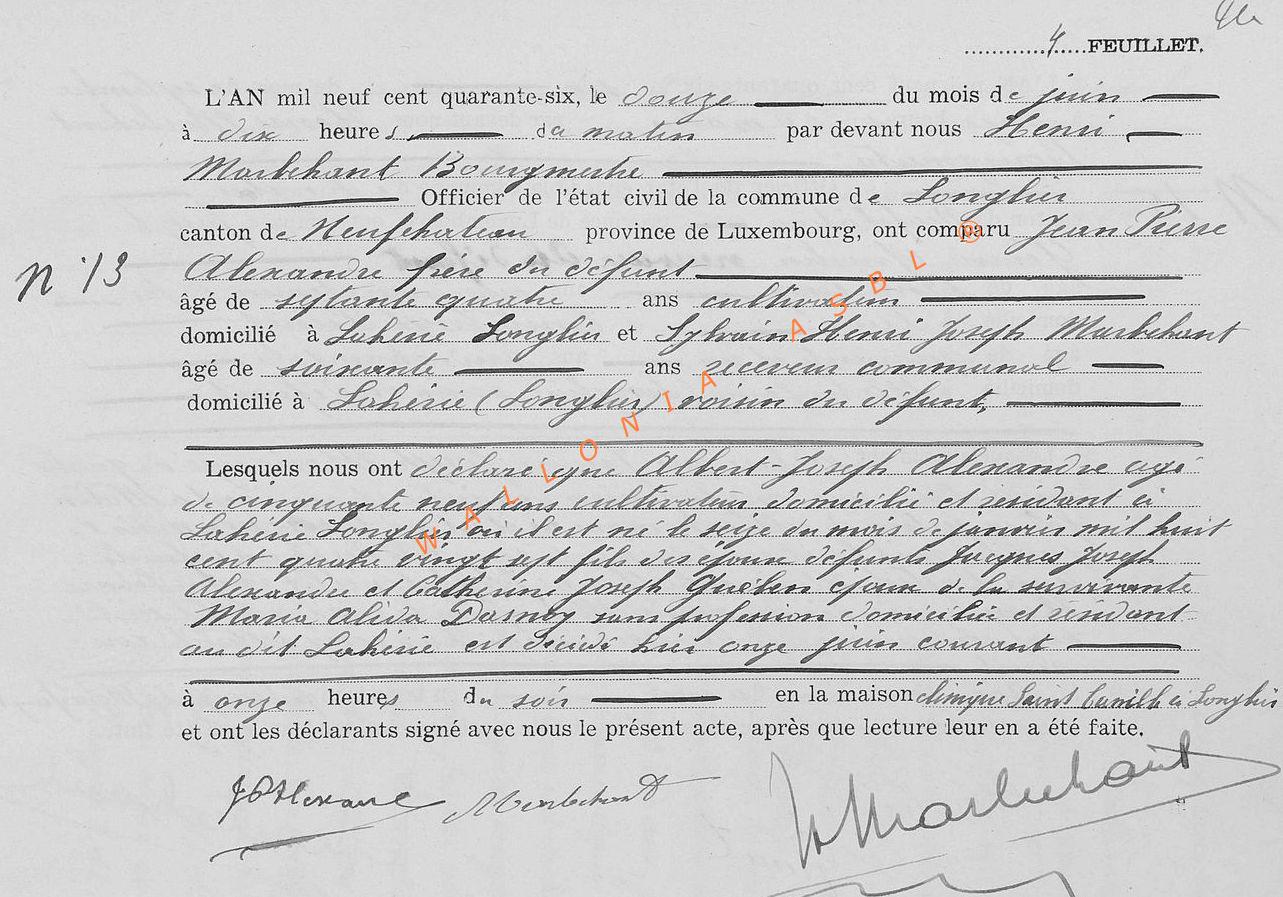 4 FEUILLET.
L'AN mil neuf cent quarante-six, le douze du mois de juin
à dix heures du matin par devant nous Henri
Marbehant Bourgmestre
Officier de l'état civil de la commune de Longlier
canton de Neufchateau province de Luxembourg, ont comparu Jean Pierre
N° 13
Alexandre frère du défunt
âgé de septante quatre ans cultivateur
domicilié à Lahérie Longlier et Sylvain Henri Joseph Marbehant
âgé de soixante ans receveur communal
domicilié à Lahérie (Longlier) voisin du défunt,
Lesquels nous ont déclaré que Albert-Joseph Alexandre agé
de cinquante neuf ans cultivateur domicilié et résidant à
Lahérie Longlier où il est né le seize du mois de janvier mil huit
cent quatre vingt sept fils des époux défunts Jacques Joseph
Alexandre et Catherine Joseph Quèben époux de la survivante
Maria Alida Dasnoy sans profession domiciliée et résidant
au dit Lahérie est décédé hier onze juin courant
à onze heures du soir en la maison clinique Saint Camille à Longlier
et ont les déclarants signé avec nous le présent acte, après que lecture leur en a été faite.
JPAlexandre Marbehant H Marbehant
WALLONIA ASBL ®